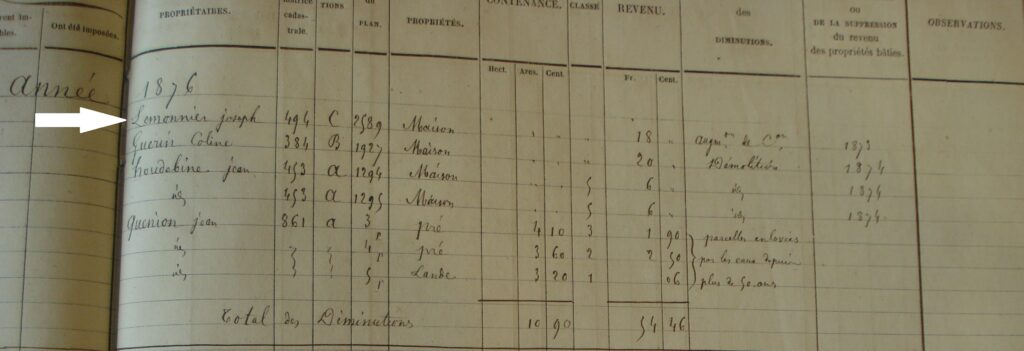 PROPRIÉTAIRES. trale. TIONS PLAN. du PROPRIÉTÉS. CONTENANCE. CLASSE REVENU. des DIMINUTIONS. ou DE LA SUPPRESSION du revenu des propriétés bâties. OBSERVATIONS.
Ont été imposées.
Hect. Ares. Cent. Fr. Cent.
Année 1876
Lemonnier joseph 494 C 2589 Maison 18 augm.on de C.on 1873
Guerin Coline 384 B 1927 Maison 20 Démolition 1874
houdebine jean 453 a 1294 Maison 5 6 id 1874
id 453 a 1295 Maison 5 6 id 1874
Guenion jean 861 a 3p pré 4 10 3 1 90 parcelles enlevées
id " " 4p pré 3 60 2 2 50 par les eaux depuis
id " " 5p Lande 3 20 1 06 plus de 50 ans
Total des Diminutions 10 90 54 46